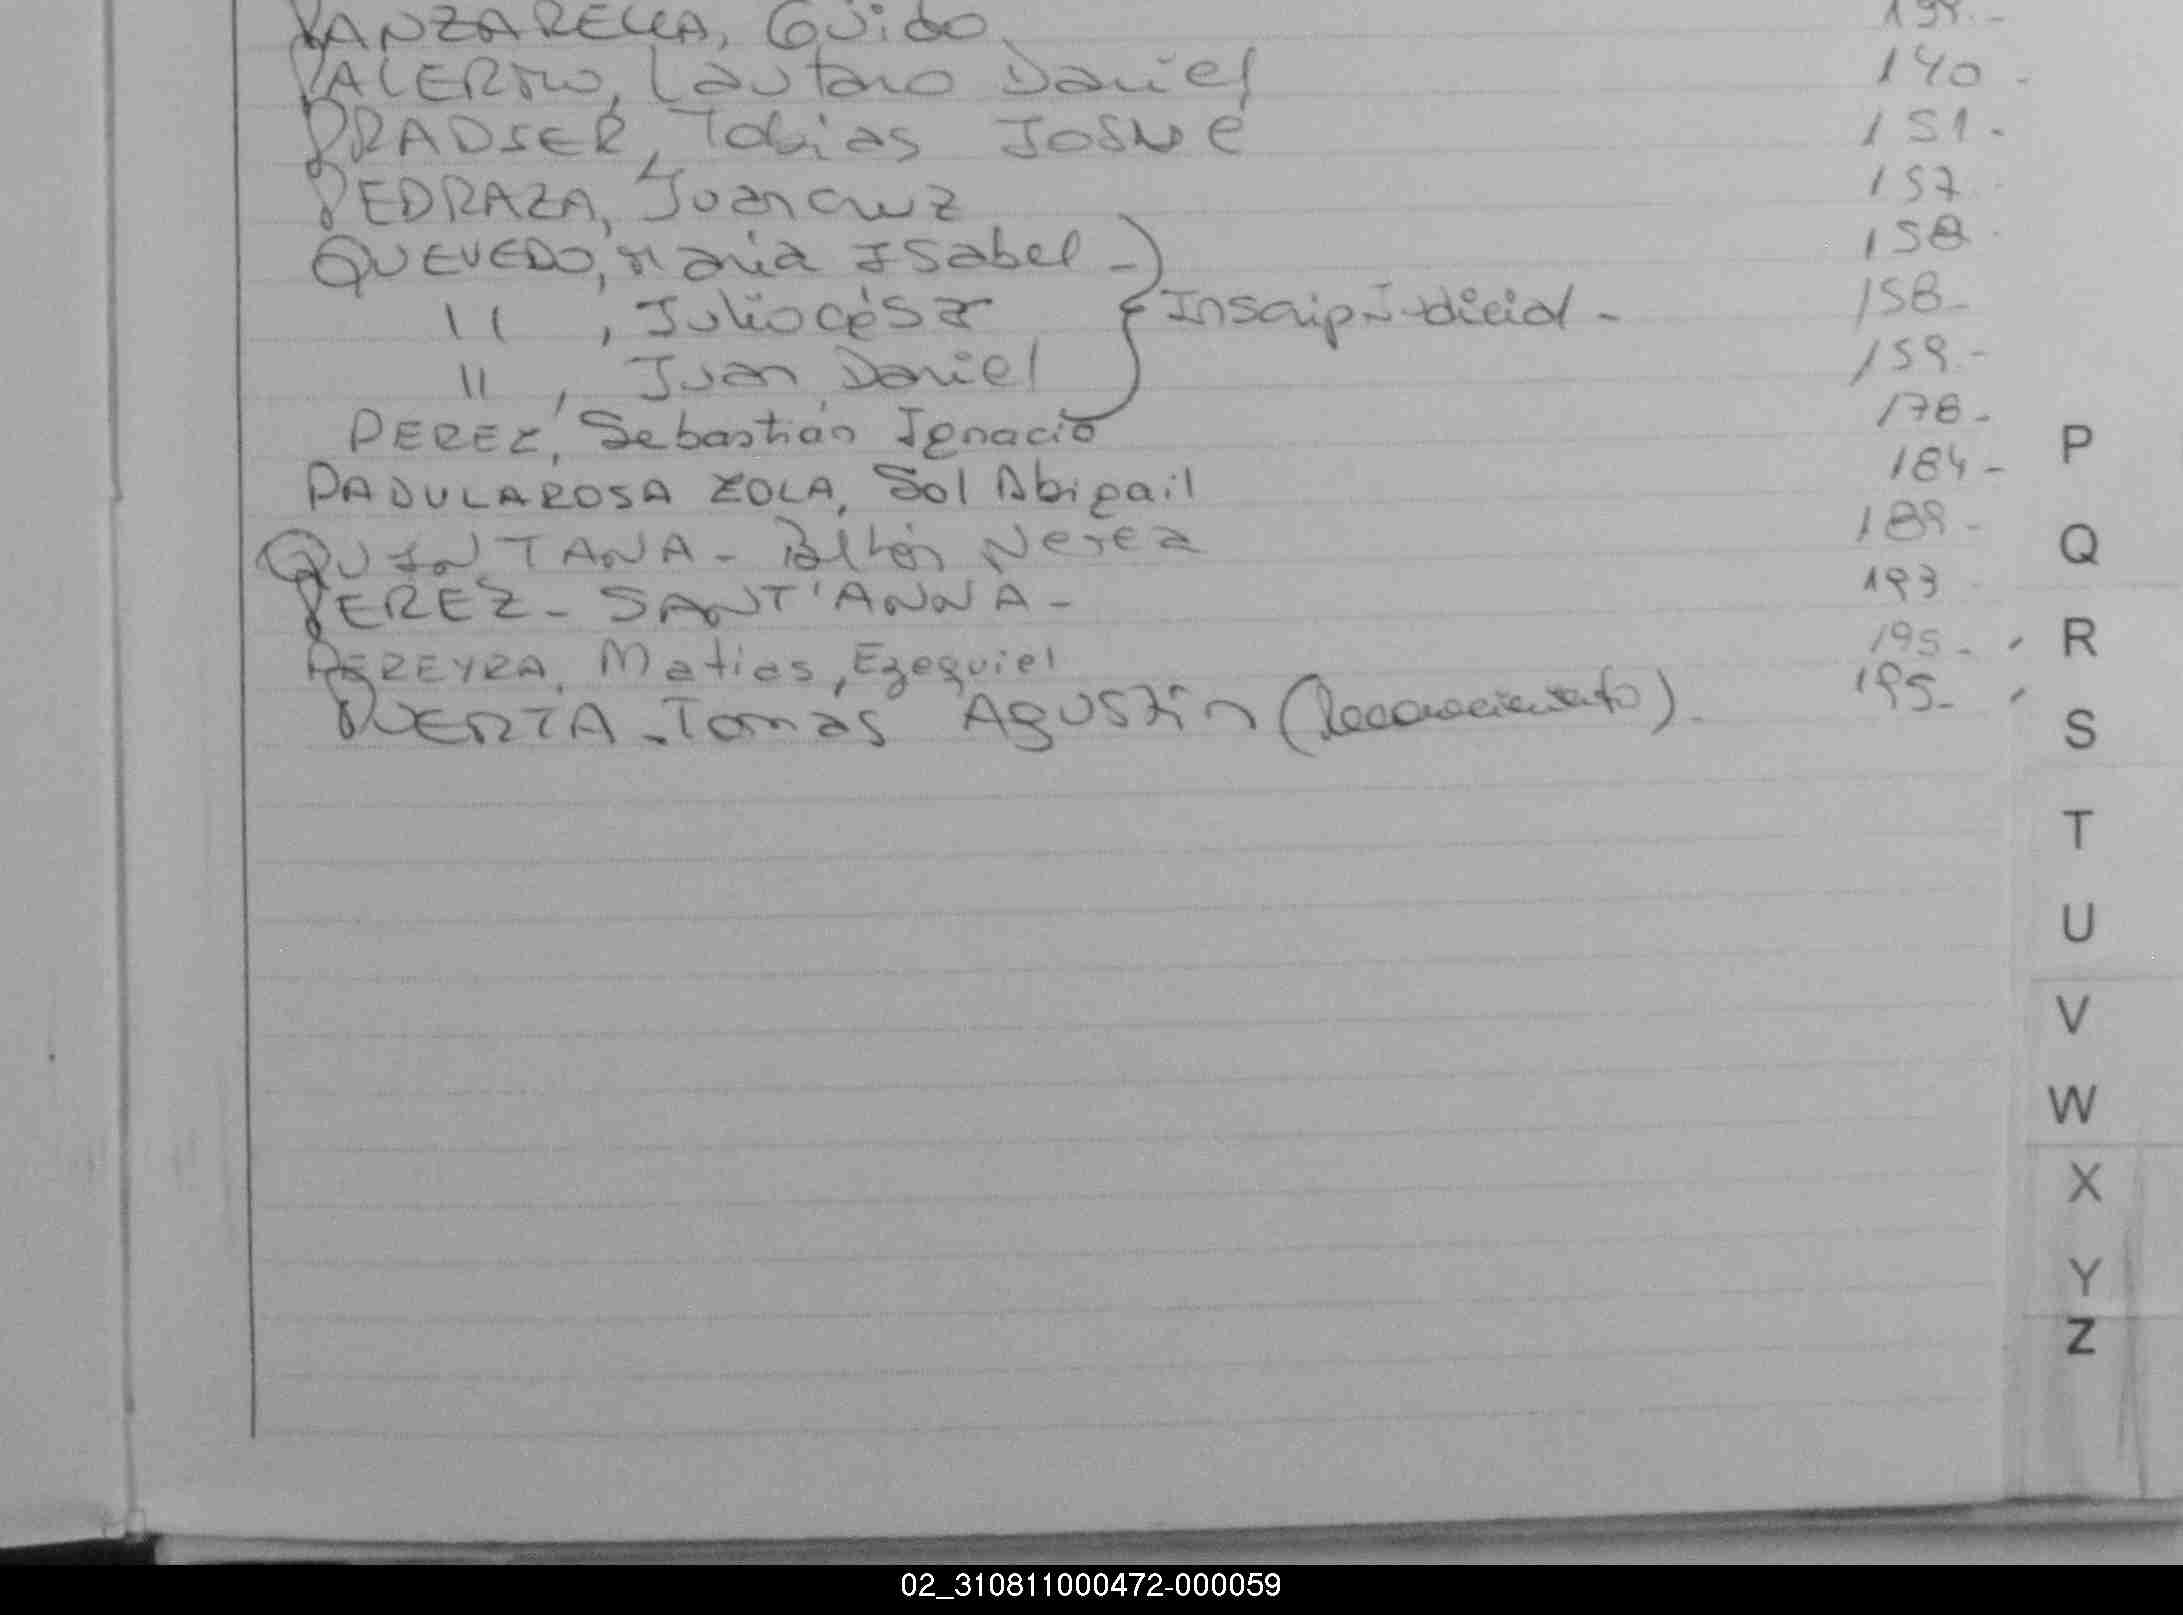 PANZARELLA, Guido
PALERMO, Lautaro Daniel 140 -
PRADSER, Tobias JOSUE 151 -
PEDRAZA, Juan cruz 157
QUEVEDO, Maria ISabel - 158
" , Julio césar Inscrip Judicial - 158 -
" , Juan Daniel 159 -
PEREZ, Sebastián Ignacio 178 -
PADULAROSA ZOLA, Sol Abigail 184 -
QUINTANA - Nerea 189 -
PEREZ - SANT'ANNA - 193
PEREYRA, Matias, Ezequiel 195 -
PUERTA - Tomas AGUSTin (Reconocimiento) 195 -
P
Q
R
S
T
U
V
W
X
Y
Z
02_310811000472-000059